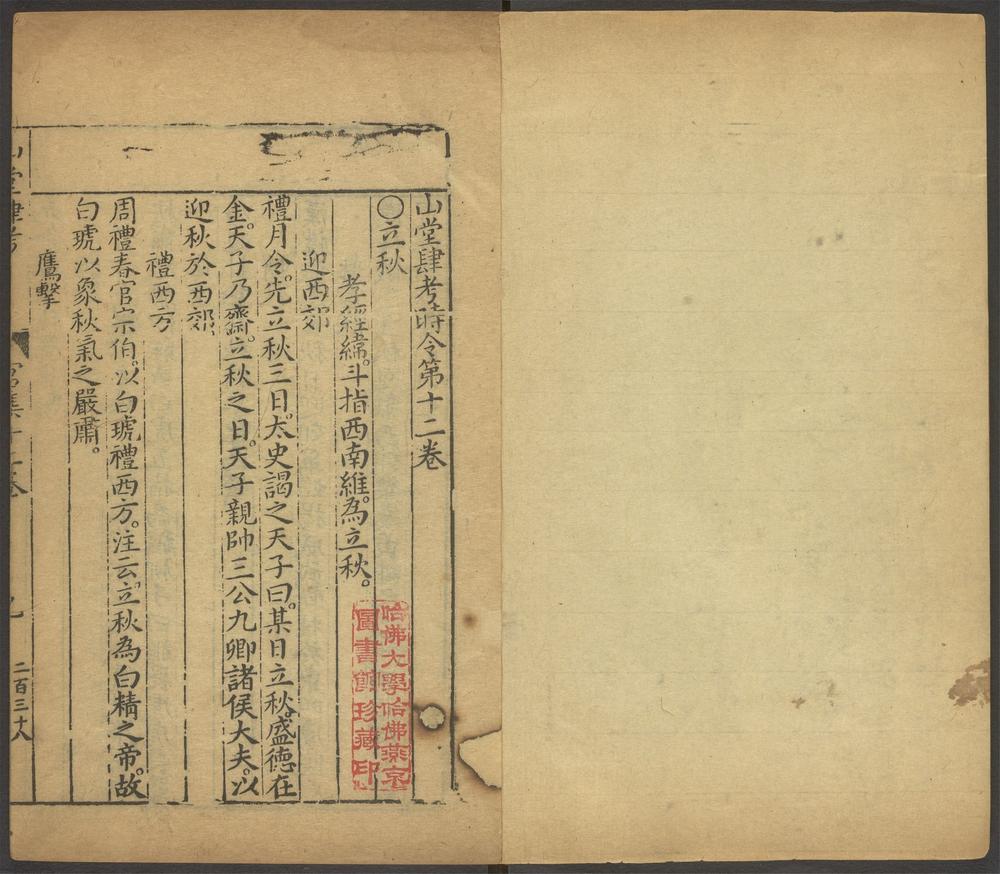 山堂肆考時令第十二卷
〇立秋
孝經緯。斗指西南維。為立秋。
迎西郊
禮月令。先立秋三日。太史謁之天子曰。某日立秋。盛德在
金。天子乃齋。立秋之日。天子親帥三公九卿諸侯大夫。以
迎秋於西郊。
禮西方
周禮春官宗伯。以白琥禮西方。注云。立秋為白精之帝。故
白琥以象秋氣之嚴肅。
鷹擊
山堂肆考
宮集十二卷
二百三十八
哈佛大學哈佛燕京
圖書館珍藏印